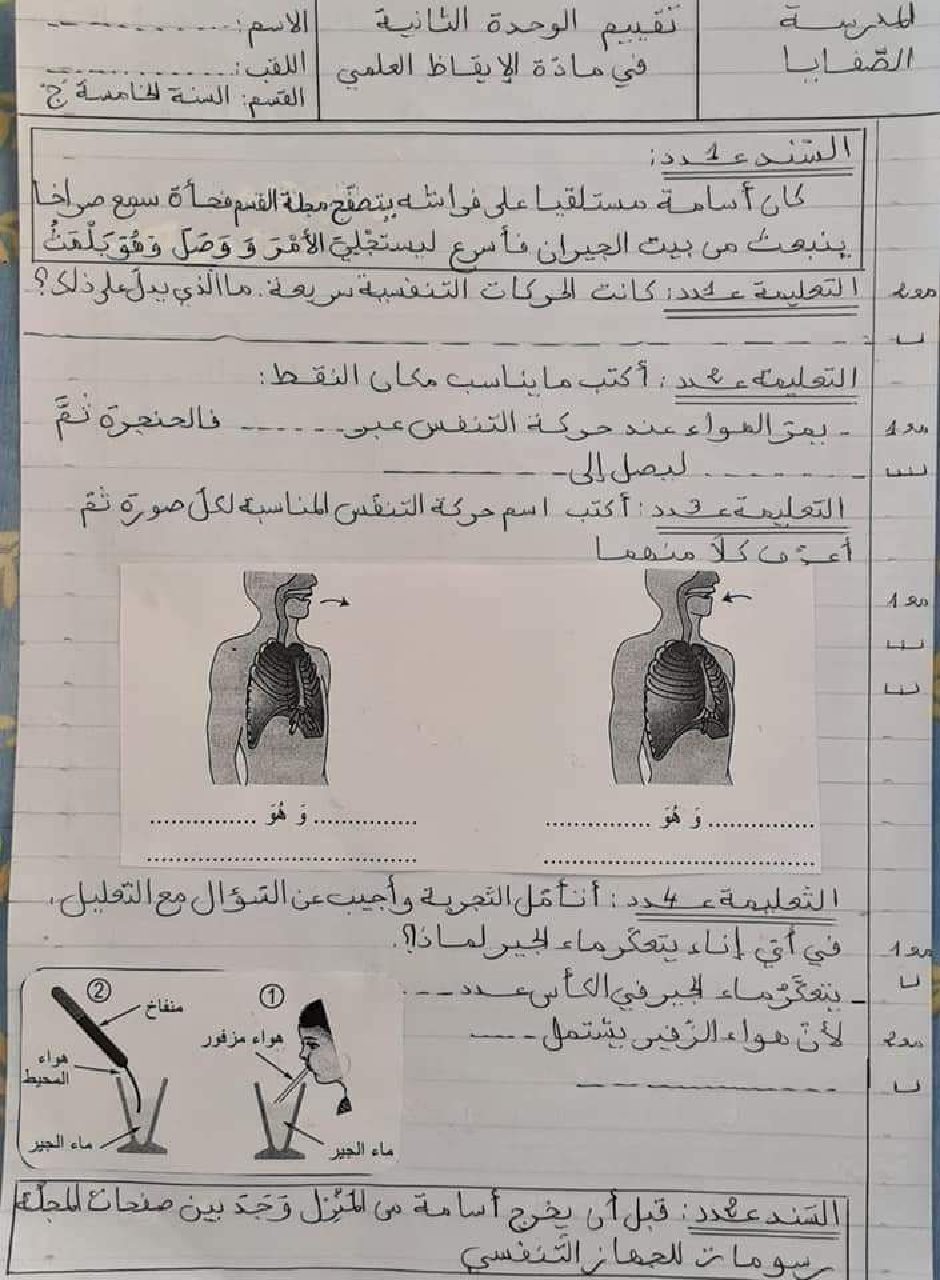 المدرسة
الصّفايا
تقييم الوحدة الثانية
في مادّة الإيقاظ العلمي
الاسم: ............
اللقب: ............
القسم: السنة الخامسة ج
السّند عـ1ـدد:
كان أسامة مستلقيا على فراشه يتصفّح مجلة القسم فجأة سمع صراخا
ينبعث من بيت الجيران فأسرع ليستجلي الأمْرَ وَ وَصَلَ وَهُوَ يَلْهَثُ
التعليمة عـ1ـدد: كانت الحركات التنفسية سريعة. ما الّذي يدلّ على ذلك؟
مع2
التعليمة عـ2ـدد: أكتب ما يناسب مكان النقط:
- يمرّ الهواء عند حركة التنفس عبر ...... فالحنجرة ثُمَّ
مع1
........ ليصل إلى ........
التعليمة عـ3ـدد: أكتب اسم حركة التنفّس المناسبة لكلّ صورة ثمّ
أعرّف كلّا منهما
مع1
............... وَ هُوَ ...............
.......................................
............... وَ هُوَ ...............
.......................................
التّعليمة عـ4ـدد: أتأمّل التّجربة وأجيب عن السّؤال مع التعليل.
في أيّ إناء يتعكّر ماء الجير لماذا؟.
مع1
- يتعكّرُ ماء الجير في الكأس عـــدد ....
لأنّ هواء الزّفير يشتمل ......
مع2
①
هواء مزفور
ماء الجير
②
منفاخ
هواء
المحيط
ماء الجير
السّند عـ2ـدد: قبل أن يخرج أسامة من المَنْزِل وَجَدَ بين صفحات المجلّة
رسومات للجهاز التّنفسي